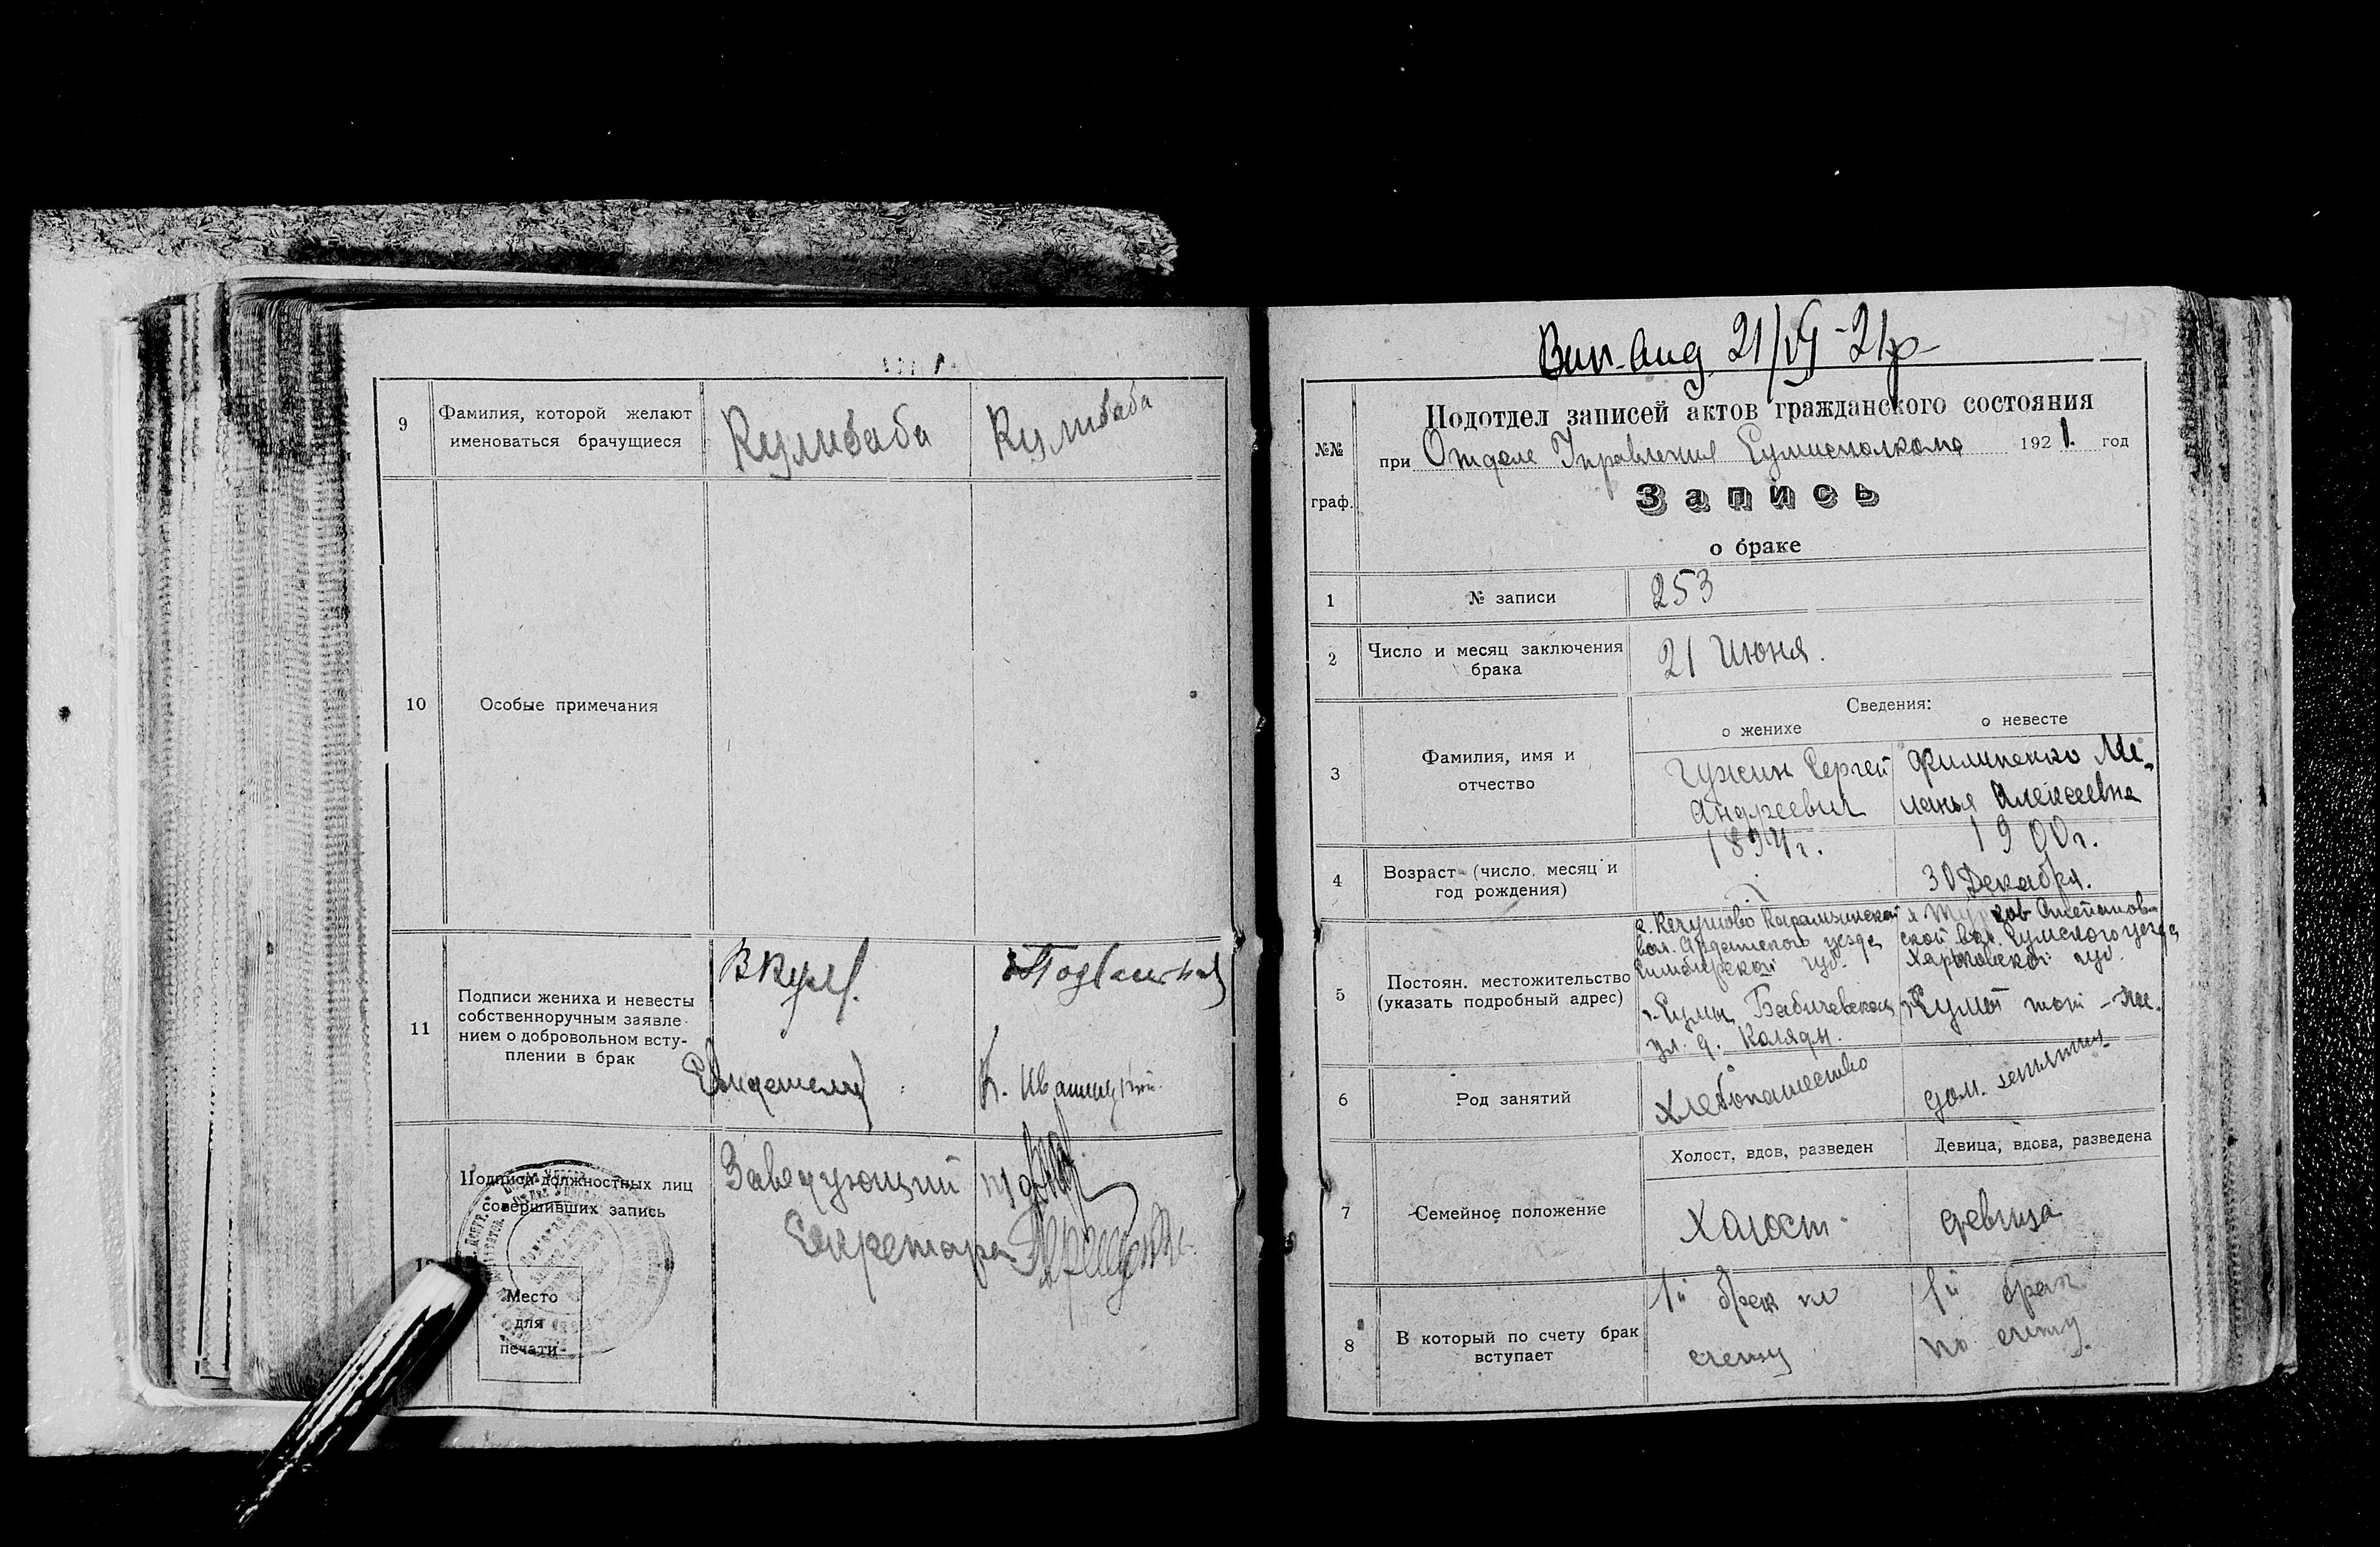 9
Фамилия, которой желают
именоваться брачущиеся
Кулибаба
Кулибаба
10
Особые примечания
11
Подписи жениха и невесты
собственноручным заявле-
нием о добровольном всту-
плении в брак
ВКул
Свидетели:
К. Ивашицкий
Подписи должностных лиц
совершивших запись
Заведующий
Секретарь
Место
для
печати
21/VI-21р
№№
граф.
Подотдел записей актов гражданского состояния
при Отделе Управления Сумисполкома 1921. год
Запись
о браке
1
№ записи
253
2
Число и месяц заключения
брака
21 Июня.
Сведения:
о женихе
о невесте
3
Фамилия, имя и
отчество
Гужин Сергей
Андреевич
Филипенко Ме-
ланья Алексеевна
4
Возраст (число, месяц и
год рождения)
1894г.
1900г.
30 Декабря.
5
Постоян. местожительство
(указать подробный адрес)
с. Кечушово Карамзинской
вол. Ардатского уезда
Симбирской губ.
г. Сумы, Бабичевская
ул. д. Коляды.
х Степанов-
ской вол. Сумского уезда
Харьковской губ.
г. Сумы
6
Род занятий
Хлебопашество
дом. занятия
7
Семейное положение
Холост, вдов, разведен
Девица, вдова, разведена
Холост
девица
8
В который по счету брак
вступает
1й брак по
счету
1й брак
по счету.